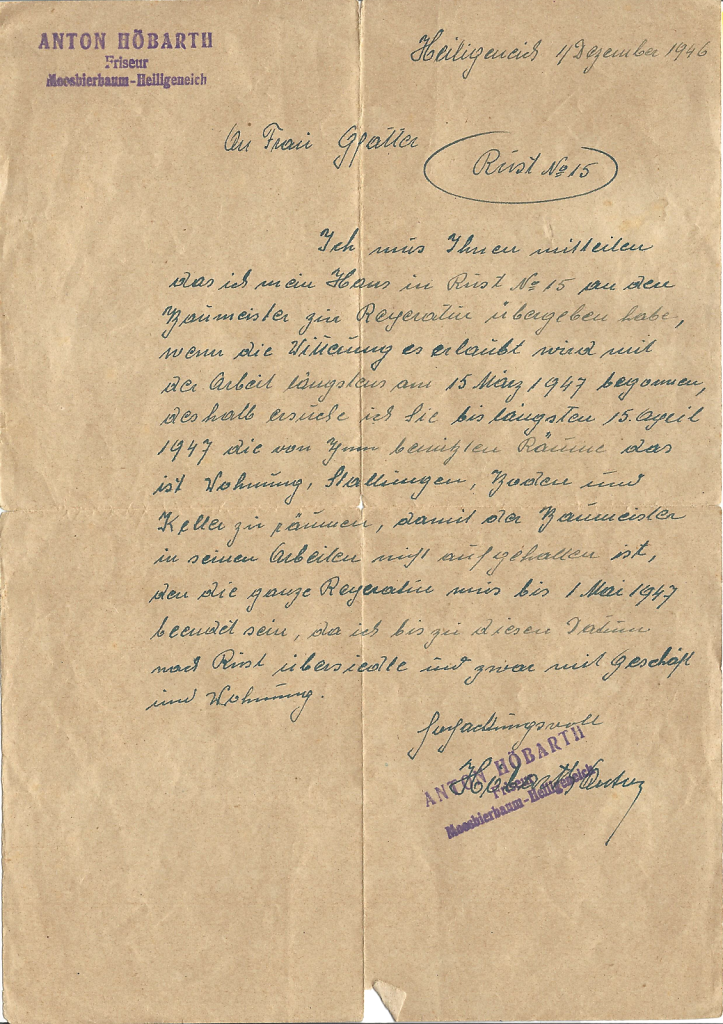 ANTON HÖBARTH
Friseur
Moosbierbaum-Heiligeneich
Heiligeneich 4 Dezember 1946
An Frau
Rust No 15
Ich mus Ihnen mitteilen
das ich mein Haus in Rust No 15 an den
Baumeister zur Reperatur übergeben habe,
wenn die Witterung es erlaubt wird mit
der Arbeit längstens am 15 März 1947 begonnen,
deshalb ersuche ich Sie bis längsten 15. April
1947 die von Ihnen benützten Räume das
ist Wohnung, Stallungen, Boden und
Keller zu räumen, damit der Baumeister
in seinen Arbeiten nicht aufgehalten ist,
den die ganze Reperatur mus bis 1 Mai 1947
beendet sein, da ich bis zu diesen Datum
nach Rust übersiedle und zwar mit Geschäft
und Wohnung.
Hochachtungsvoll
Höbarth Anton
ANTON HÖBARTH
Friseur
Moosbierbaum-Heiligeneich